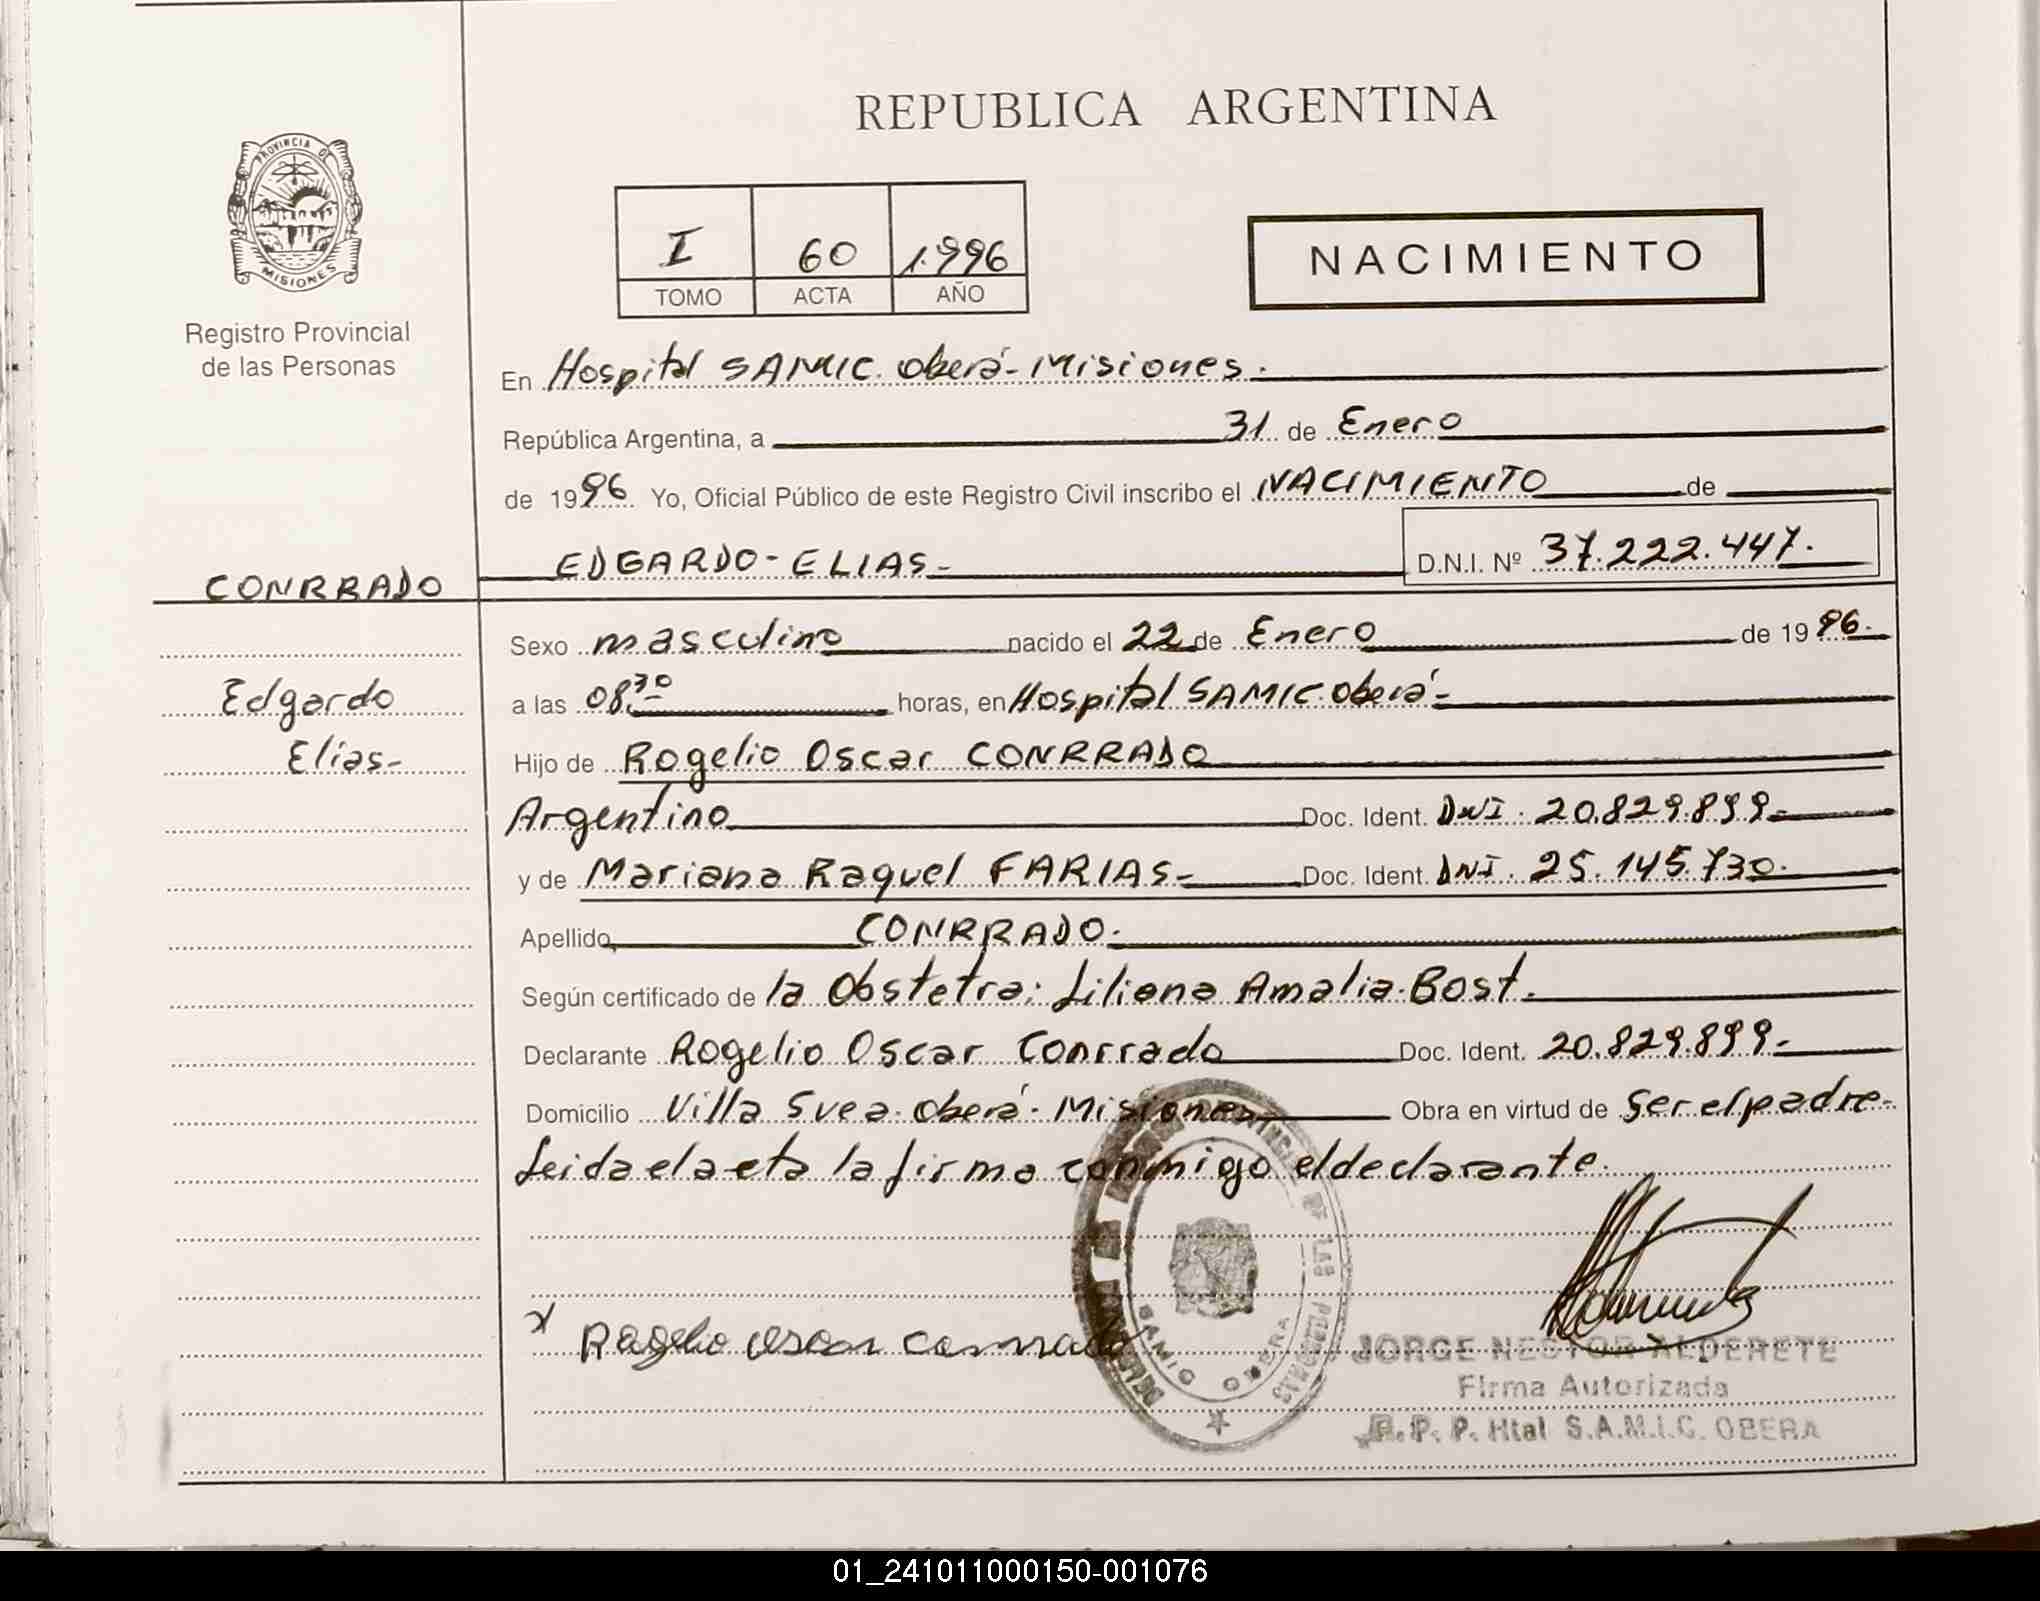 REPUBLICA ARGENTINA
PROVINCIA DE
MISIONES
Registro Provincial
de las Personas
I 60 1.996
TOMO ACTA AÑO
NACIMIENTO
En Hospital SAMIC. Oberá - Misiones.
República Argentina, a 31 de Enero
de 1996. Yo, Oficial Público de este Registro Civil inscribo el NACIMIENTO de
EDGARDO - ELIAS - D.N.I. Nº 37.222.447.
CONRRADO
Edgardo
Elias-
Sexo masculino nacido el 22 de Enero de 1996.
a las 08,30 horas, en Hospital SAMIC. Oberá-
Hijo de Rogelio Oscar CONRRADO
Argentino Doc. Ident. DNI. 20.829.899-
y de Mariana Raquel FARIAS- Doc. Ident. DNI. 25.145.730.
Apellido CONRRADO.
Según certificado de la Obstetra: Liliana Amalia Bost.
Declarante Rogelio Oscar Conrrado Doc. Ident. 20.829.899-
Domicilio Villa Svea. Oberá - Misiones Obra en virtud de ser el padre-
Leida el aeta la firma conmigo el declarante.
x Rogelio Oscar Conrrado
SAMIC OBERA
JORGE NESTOR ALDERETE
Firma Autorizada
R. P. P. Htal S.A.M.I.C. OBERA
01_241011000150-001076